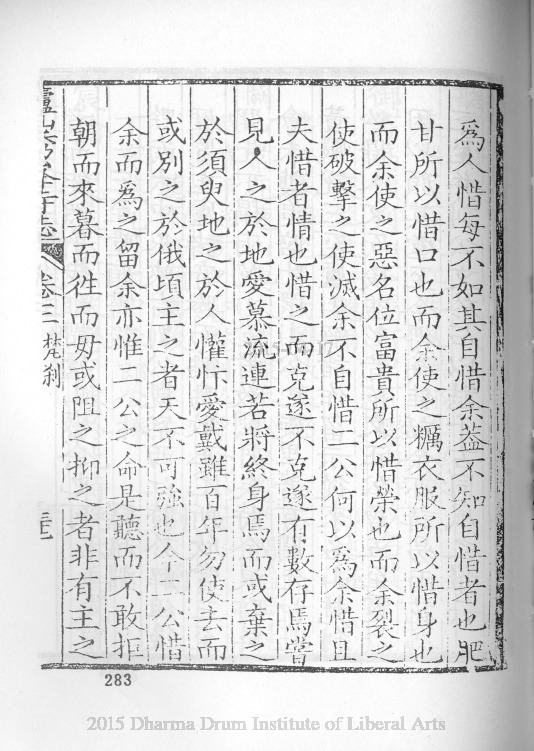 爲人惜每不如其自惜余葢不知自惜者也肥
甘所以惜口也而余使之糲衣服所以惜身也
而余使之惡名位富貴所以惜榮也而余裂之
使破擊之使滅余不自惜二公何以爲余惜且
夫惜者情也惜之而克遂不克遂有數存焉嘗
見人之於地愛慕流連若將終身焉而或棄之
於須臾地之於人懽忭愛戴雖百年勿使去而
或別之於俄頃主之者天不可強也今二公惜
余而爲之留余亦惟二公之命是聽而不敢拒
朝而來暮而徃而毋或阻之抑之者非有主之
志 卷三 梵刹
283
2015 Dharma Drum Institute of Liberal Arts